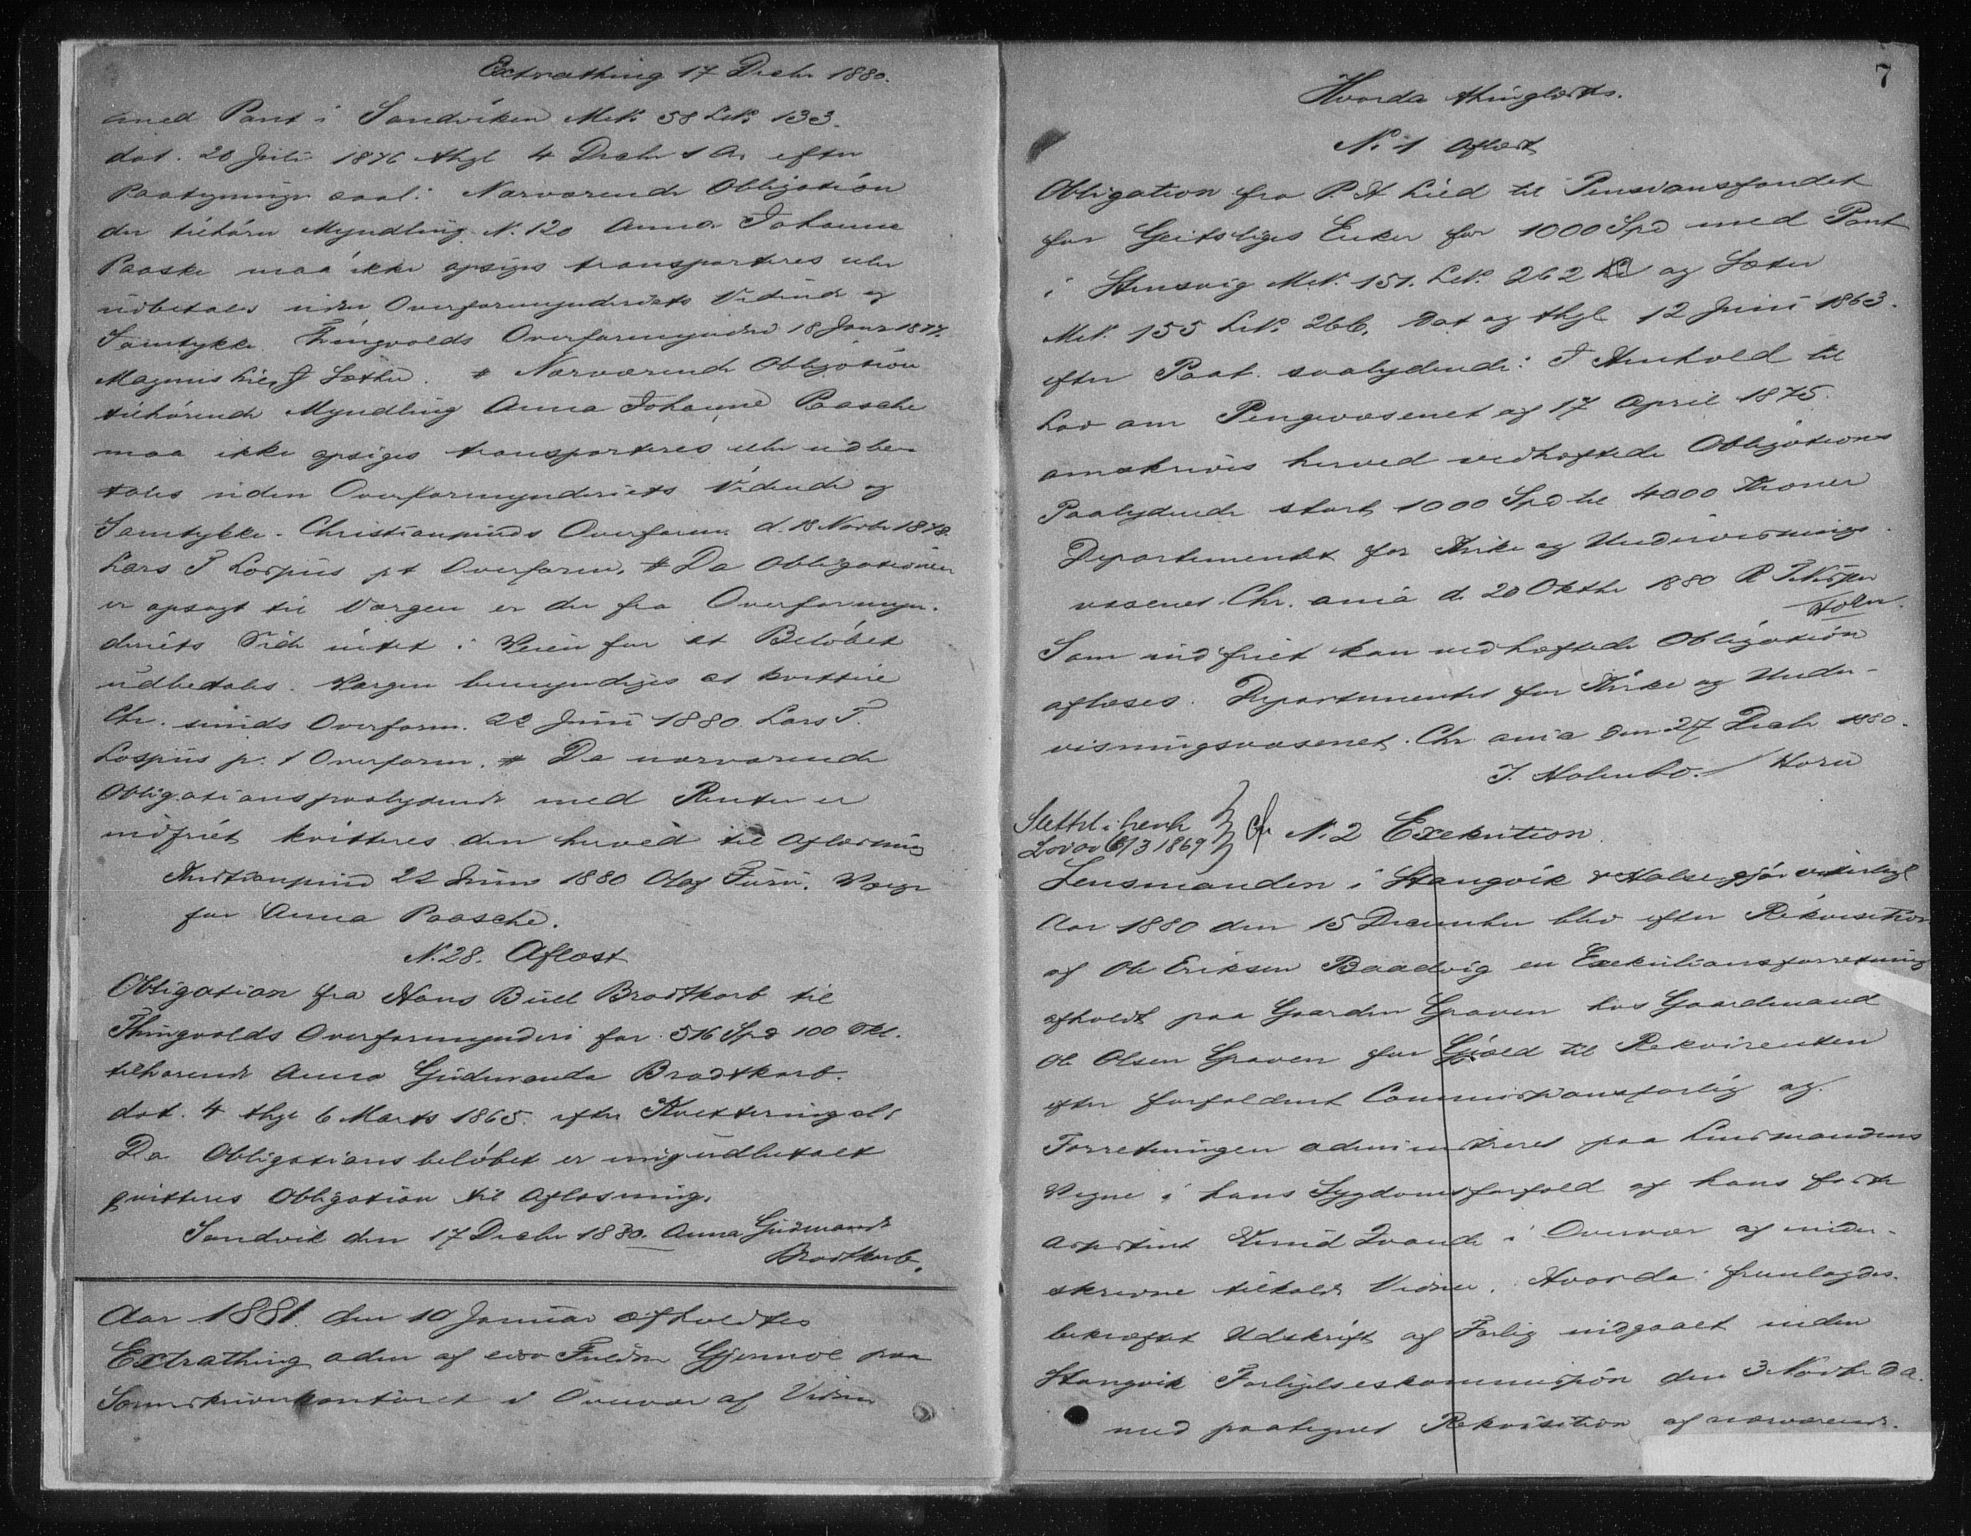 Extrathing 17 Decbr 1880.
med Pant i Sandviken Mtr. 58 LN. 133.
dat. 20 Juli 1876 thgl 4 Decbr s A. efter
Paategninger saal: Nærværende Obligation
der tilhører Myndling N. 120 Anna Johanne
Paaske maa ikke opsiges transporteres eller
udbetales uden Overformynderiets Vidende og
Samtykke Thingvolds Overformynderi 18 Janr 1877.
Magnus Lie, J Sæther. # Nærværende Obligation
tilhørende Myndling Anna Johanne Paasche
maa ikke opsiges transporteres eller udbe-
tales uden Overformynderiets Vidende og
Samtykke. Christiansunds Overform. d. 18 Novbr 1878.
Lars T Lossius pt Overform. # Da Obligationen
er opsagt til Værgen er der fra Overformyn-
deriets Side intet i Veien for at Beløbet
udbetales. Værgen bemyndiges at kvittere
Chr. sunds Overform. 22 Juni 1880 Lars T.
Lossius p. t Overform. # Da nærværende
Obligationspaalydende med Renter er
indfriet kvitteres den herved til Aflæsning
Kristiansund 22 Juni 1880 Olaf Furu. Værge
for Anna Paasche.
N. 28. Aflæst
Obligation fra Hans Bull Brodtkorb til
Thingvolds Overformynderi for 516 Spd 100 Skl.
tilhørende Anna Gudmanda Brodtkorb.
dat. 4 thgl 6 Marts 1865. efter Kvittering sl:
Da Obligationsbeløbet er mig udbetalt
qvitteres Obligation til Aflæsning.
Sandvik den 17 Decbr 1880. Anna Gudmande
Brodtkorb.
Aar 1881. den 10 Januar afholdtes
Extrathing af Gjermoe paa
Sorenskriverkontoret i Overvær af Vidner
7
Hvorda thinglæstes.
N. 1 Aflæst
Obligation fra P. A Lied til Pensionsfondet
for Geistliges Enker for 1000 Spd med Pant
i Stensvig Mtr. 151. LN. 262 og Sæter
Mtr. 155 LN. 266. Dat og thgl 12 Juni 1863.
efter Paat. saalydende: I Henhold til
Lov om Pengevæsenet af 17 April 1875.
omskrives herved vedhæftede Obligations
Paalydende stort 1000 Spd til 4000 Kroner
Departementet for Kirke og Undervisnings
væsenet Chr. ania d. 20 Oktbr 1880
Som indfriet kan vedhæftede Obligation
aflæses. Departementet for Kirke og Under-
visningsvæsenet. Chr ania den 27 Decbr 1880.
J. Holmbo. / Horn
Slettet i henh
Lov av 6/3 1869 N. 2 Exekution
Lensmanden i Stangvik & Halse gjør vitterligt
Aar 1880 den 15 December blev efter Rekvisition
af Ole Eriksen Baadvig en Exekutionsforretning
afholdt paa Gaarden Graven hos Gaardmand
Ole Olsen Graven for Gjæld til Rekvirenten
efter forfaldent Commissionsforlig og
Forretningen administreret paa Lensmandens
Vegne i hans Sygdomsforfald af hans faste
Knud i Overvær af under-
skrevne tilkaldte Vidner. Hvorda fremlagdes.
bekræftet Udskrift af Forlig indgaaet inden
Stangvik Forligelseskommission den 3 Novbr d A.
med paategnet Rekvisition af nærværende